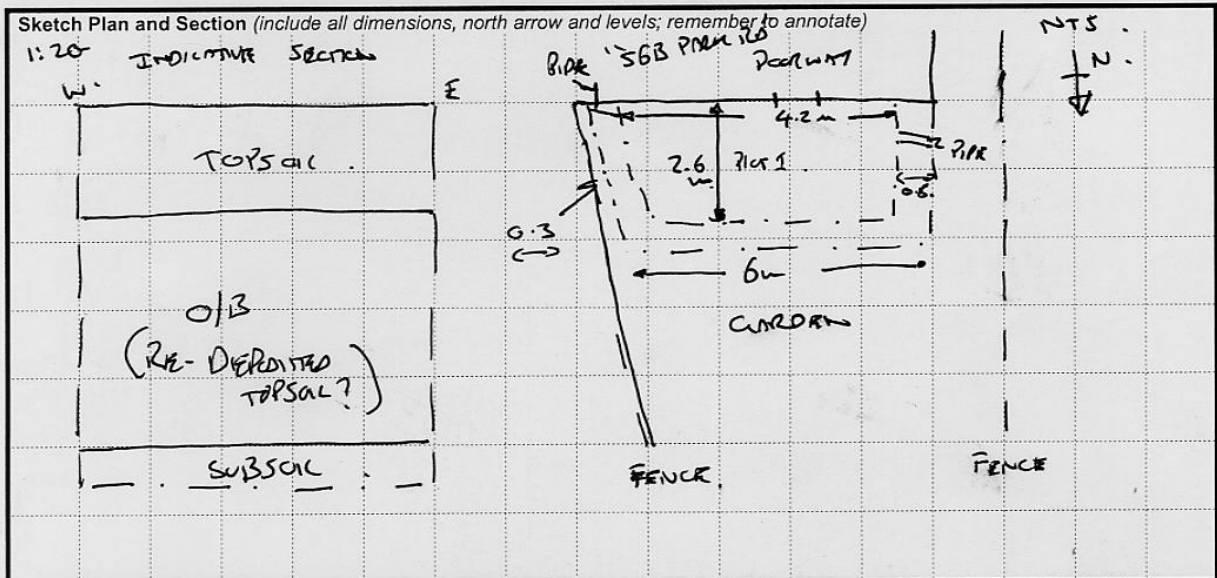 Sketch Plan and Section (include all dimensions, north arrow and levels; remember to annotate)
1:20 INDICATIVE SECTION
W. E
TOPSOIL.
O/B
(RE-DEPOSITED
TOPSOIL?)
SUBSOIL
PIPE 56B PARK RD
DOORWAY
NTS.
N.
4.2m
2.6
m
PLOT 1.
PIPE
0.8
0.3
6m
GARDEN
FENCE.
FENCE